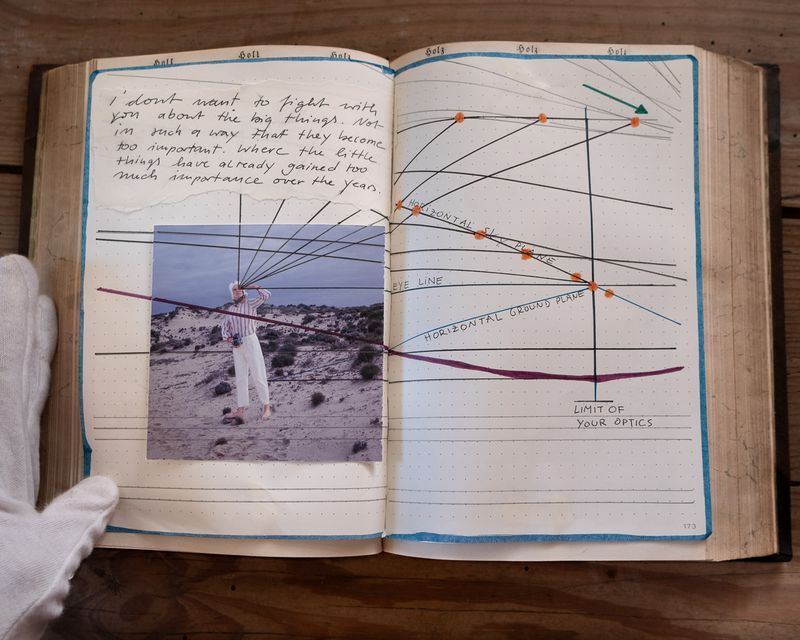 Holz
Holz
Holz
Holz
Holz
Holz
i dont want to fight with
you about the big things. Not
in such a way that they become
too important. Where the little
things have already gained too
much importance over the years.
HORIZONTAL SKY PLANE
EYE LINE
HORIZONTAL GROUND PLANE
LIMIT OF
YOUR OPTICS
173